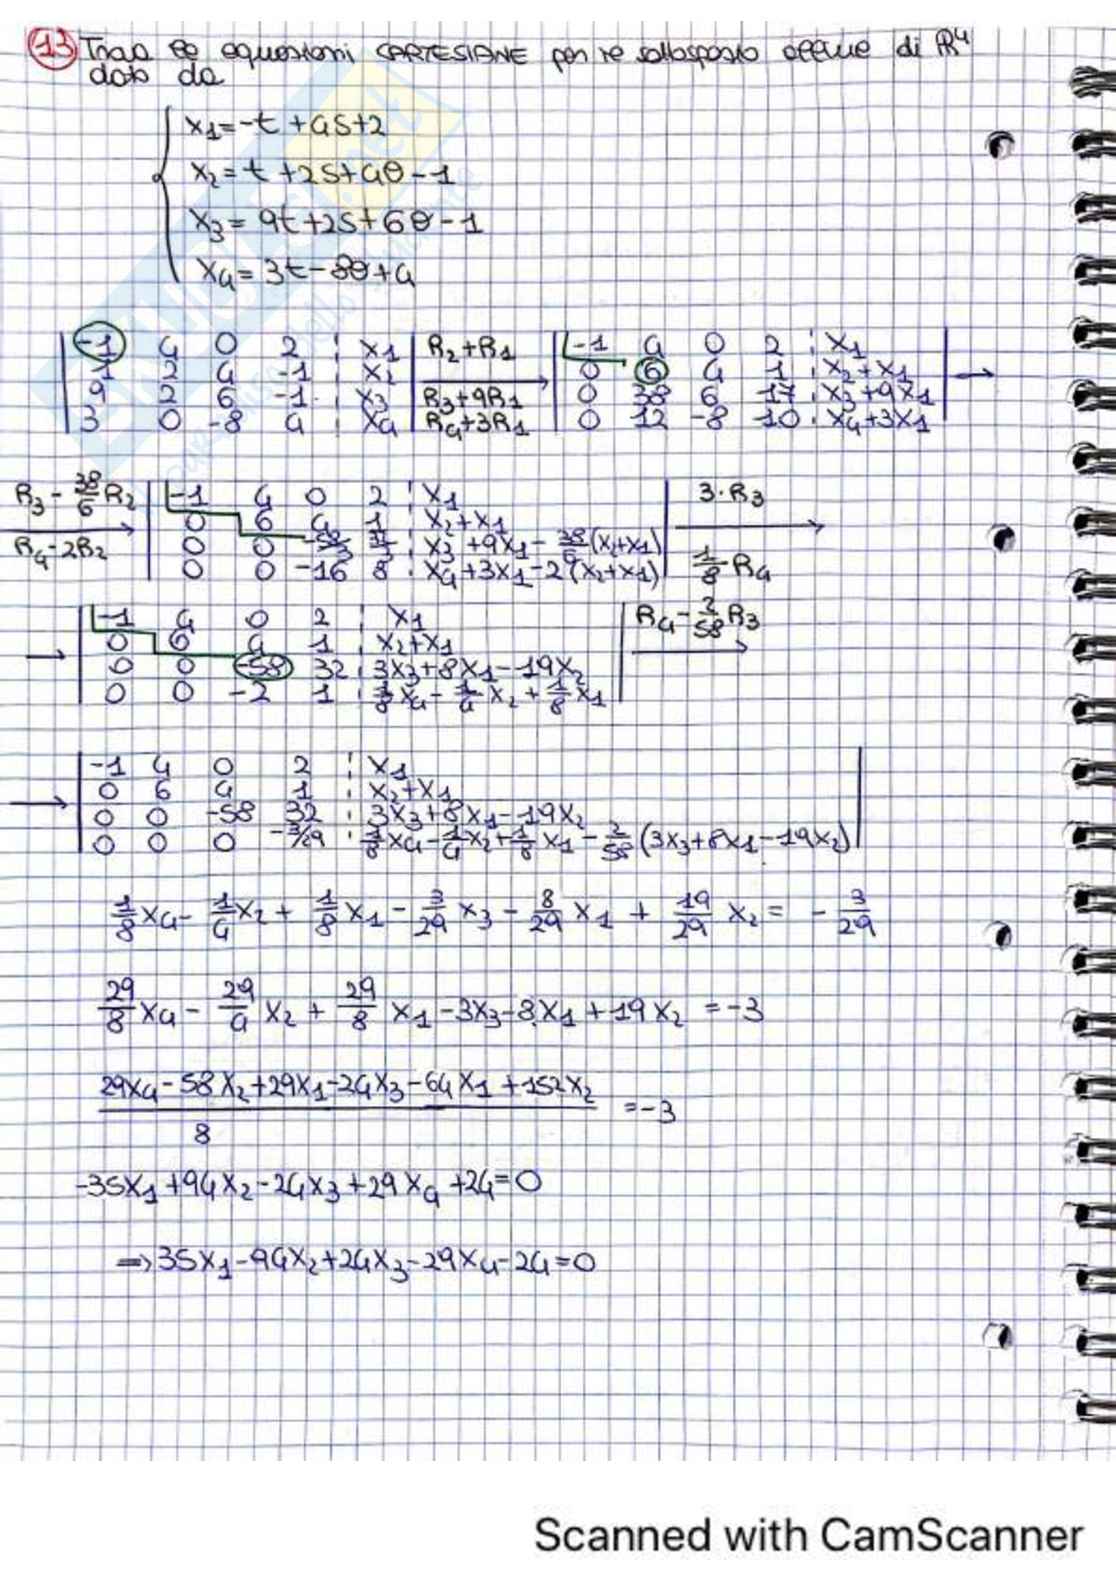 13 Trova le equazioni CARTESIANE per il sottospazio affine di R⁴
dato da
x1 = -t + 4s + 2
x2 = t + 2s + 4θ - 1
x3 = 9t + 2s + 6θ - 1
x4 = 3t - 8θ + 4
-1 4 0 2 ¦ x1 | R2+R1 | -1 4 0 2 ¦ x1
1 2 4 -1 ¦ x2 | 0 6 4 1 ¦ x2+x1 →
9 2 6 -1 ¦ x3 | R3+9R1 | 0 38 6 17 ¦ x3+9x1
3 0 -8 4 ¦ x4 | R4+3R1 | 0 12 -8 10 ¦ x4+3x1
R3 - 38/6 R2 | -1 4 0 2 ¦ x1 | 3·R3
0 6 4 1 ¦ x2+x1
R4-2R2 | 0 0 -58/3 ¦ x3+9x1 - 38/6 (x2+x1)
0 0 -16 8 ¦ x4+3x1-2(x2+x1) | 1/8 R4
-1 4 0 2 ¦ x1 | R4 - 2/58 R3
0 6 4 1 ¦ x2+x1
→ 0 0 -58 32 ¦ 3x3+8x1-19x2
0 0 -2 1 ¦ 1/8 x4 - 1/4 x2 + 1/8 x1
-1 4 0 2 ¦ x1
0 6 4 1 ¦ x2+x1
→ 0 0 -58 32 ¦ 3x3+8x1-19x2
0 0 0 -3/29 ¦ 1/8 x4 - 1/4 x2 + 1/8 x1 - 2/58 (3x3+8x1-19x2)
1/8 x4 - 1/4 x2 + 1/8 x1 - 3/29 x3 - 8/29 x1 + 19/29 x2 = - 3/29
29/8 x4 - 29/4 x2 + 29/8 x1 - 3x3 - 8x1 + 19x2 = -3
29x4 - 58x2 + 29x1 - 24x3 - 64x1 + 152x2 = -3
8
-35x1 + 94x2 - 24x3 + 29x4 + 24 = 0
⇒ 35x1 - 94x2 + 24x3 - 29x4 - 24 = 0
Scanned with CamScanner